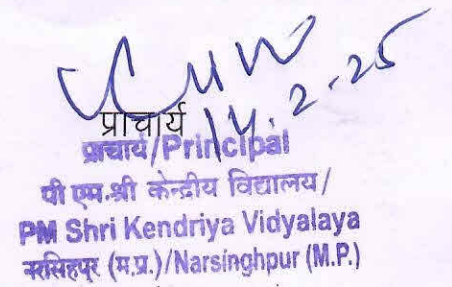 14.2.25
प्राचार्य
प्राचार्य/Principal
पी एम.श्री केन्द्रीय विद्यालय/
PM Shri Kendriya Vidyalaya
नरसिंहपुर (म.प्र.)/Narsinghpur (M.P.)